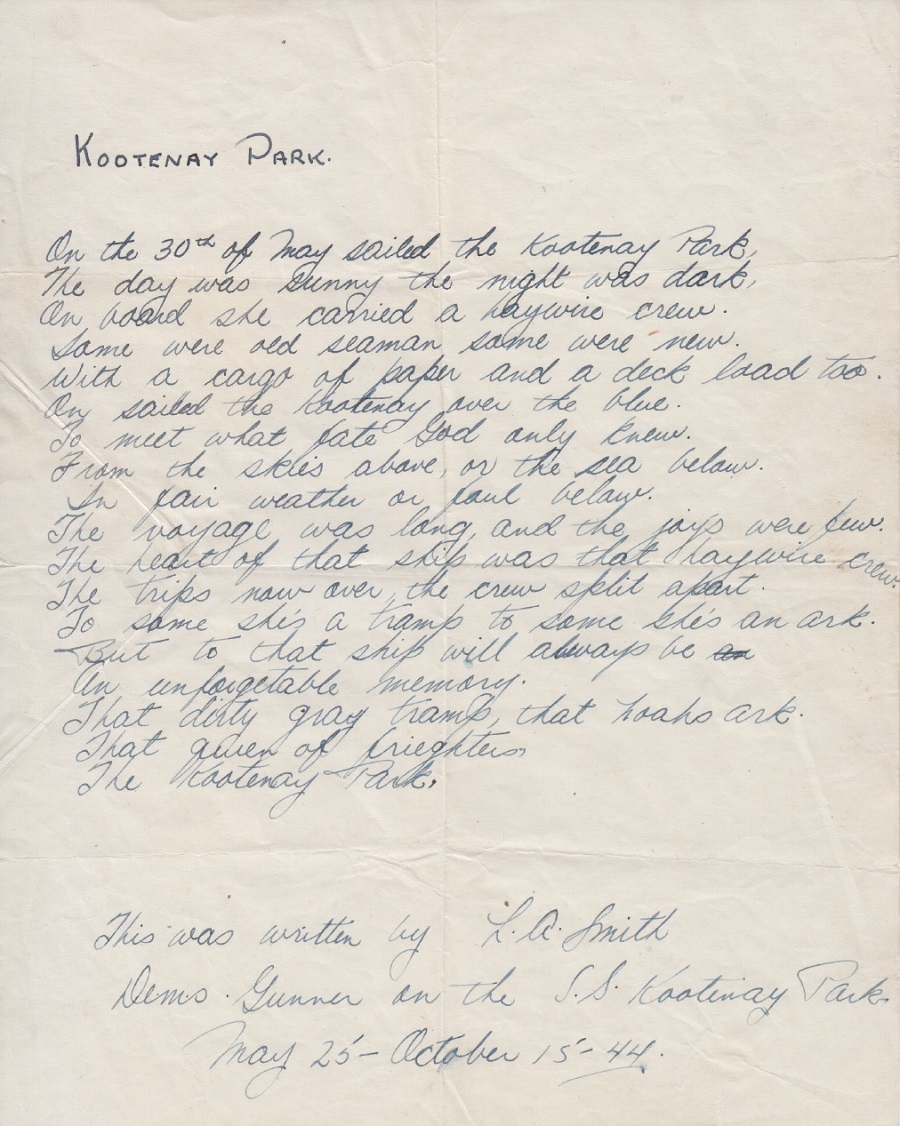 KOOTENAY PARK.
On the 30th of May sailed the Kootenay Park,
The day was sunny the night was dark,
On board she carried a haywire crew.
Some were old seaman some were new.
With a cargo of paper and a deck load too.
On sailed the Kootenay over the blue.
To meet what fate God only knew.
From the skies above, or the sea below.
In fair weather or foul below.
The voyage was long, and the joys were few.
The heart of that ship was that haywire crew.
The trips now over, the crew split apart.
To some she's a tramp to some she's an ark.
But to that ship will always be an
An unforgetable memory.
That dirty gray tramp, that noahs ark.
That queen of frieghters,
The Kootenay Park.
This was written by L.A. Smith
Dems. Gunner on the S.S. Kootenay Park.
May 25 - October 15 - 44.